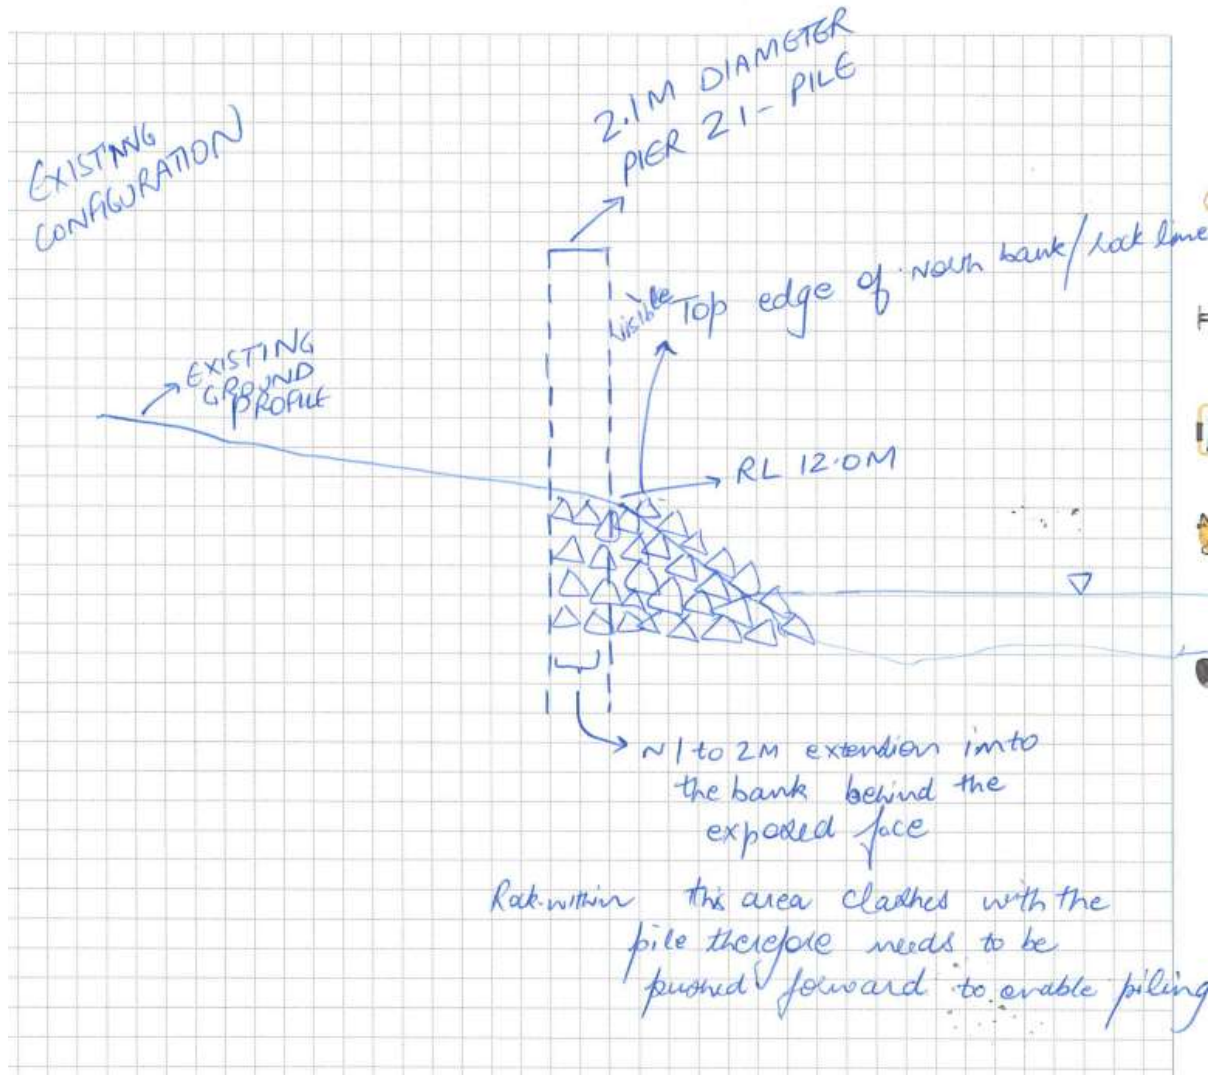 EXISTING
CONFIGURATION
2.1M DIAMETER
PIER 21 - PILE
visible Top edge of north bank/rock line
EXISTING
GROUND
PROFILE
RL 12.0M
~1 to 2M extension into
the bank behind the
exposed face
Rock within this area clashes with the
pile therefore needs to be
pushed forward to enable piling